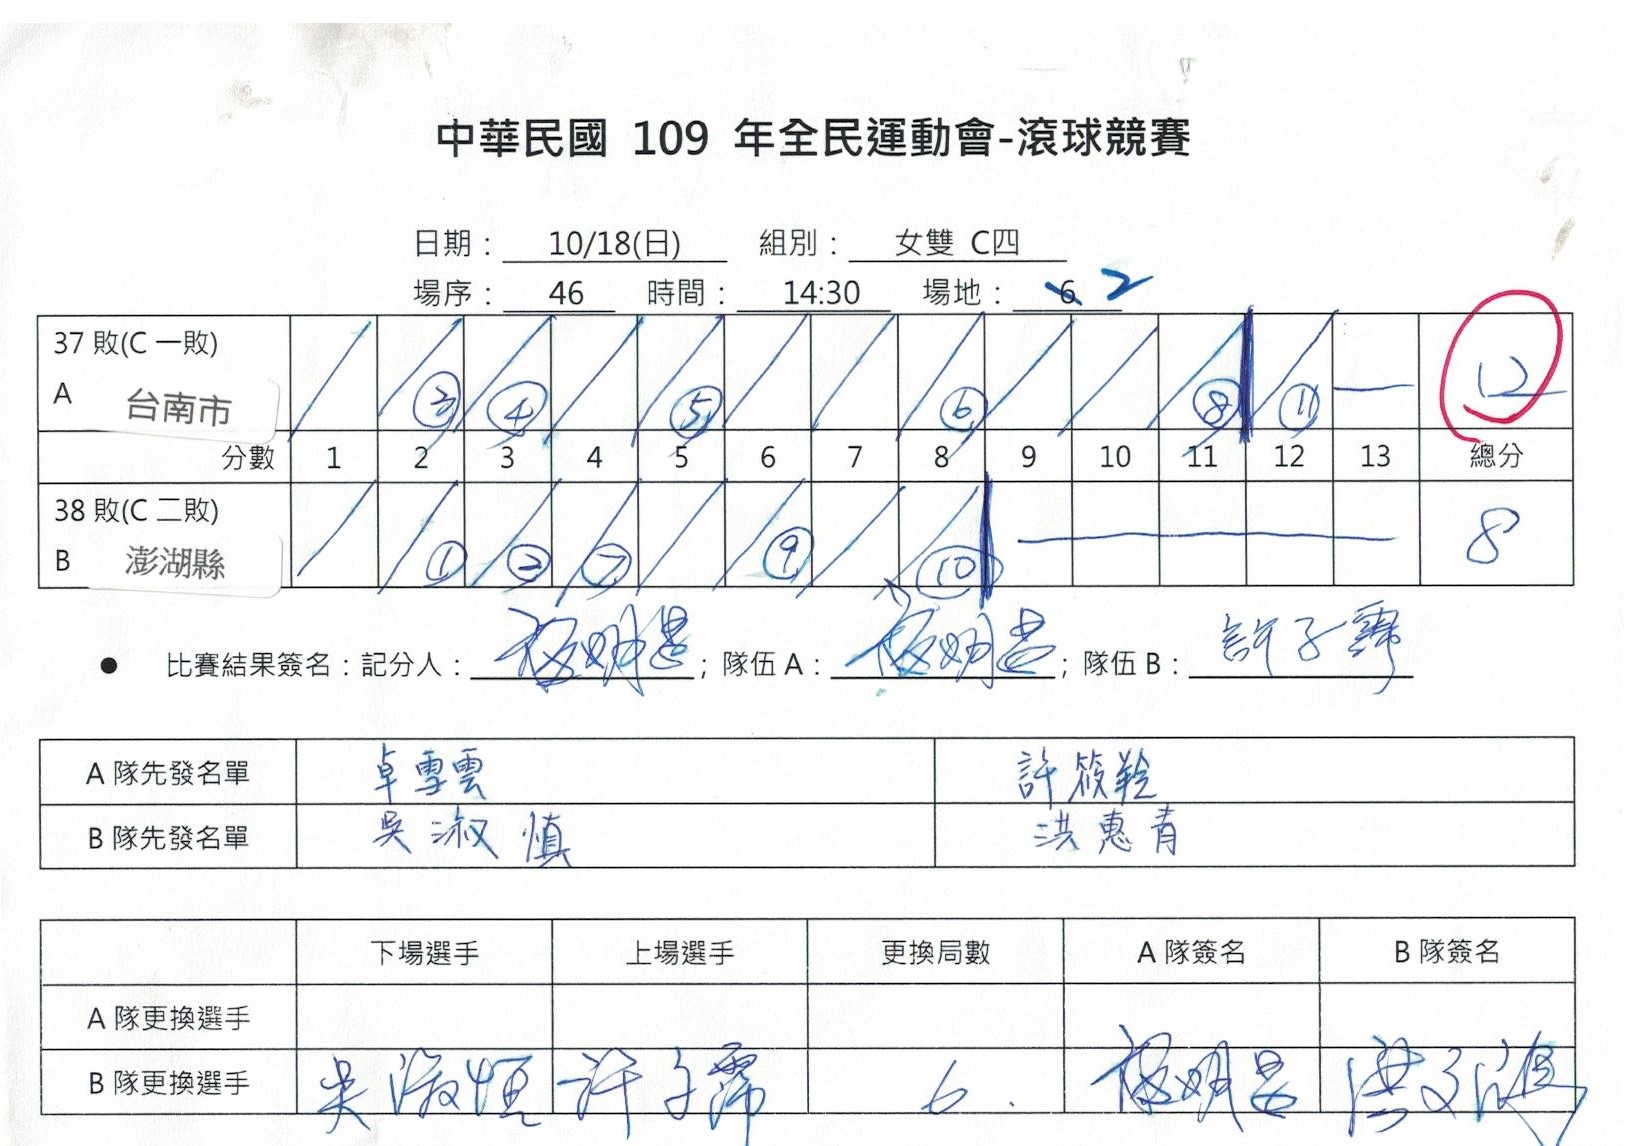 中華民國 109 年全民運動會-滾球競賽
日期： 10/18(日) 組別： 女雙 C四
場序： 46 時間： 14:30 場地： 6 2
37 敗(C 一敗)
A 台南市 ③ ④ ⑤ ⑥ ⑧ ⑪ 12
分數 1 2 3 4 5 6 7 8 9 10 11 12 13 總分
38 敗(C 二敗)
B 澎湖縣 ① ② ⑦ ⑨ ⑩ 8
● 比賽結果簽名：記分人： ；隊伍 A： ；隊伍 B： 許子霈
A 隊先發名單 卓雪雲 許筱羚
B 隊先發名單 吳淑慎 洪惠青
下場選手 上場選手 更換局數 A 隊簽名 B 隊簽名
A 隊更換選手
B 隊更換選手 吳淑慎 許子霈 6.